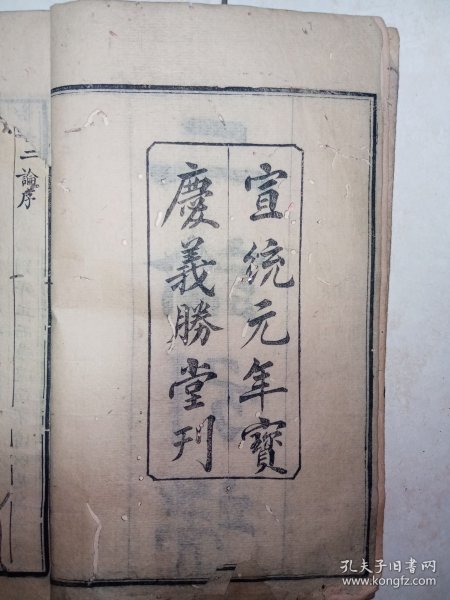 宣統元年寳
慶義勝堂刊
二論序
孔夫子旧书网
www.kongfz.com